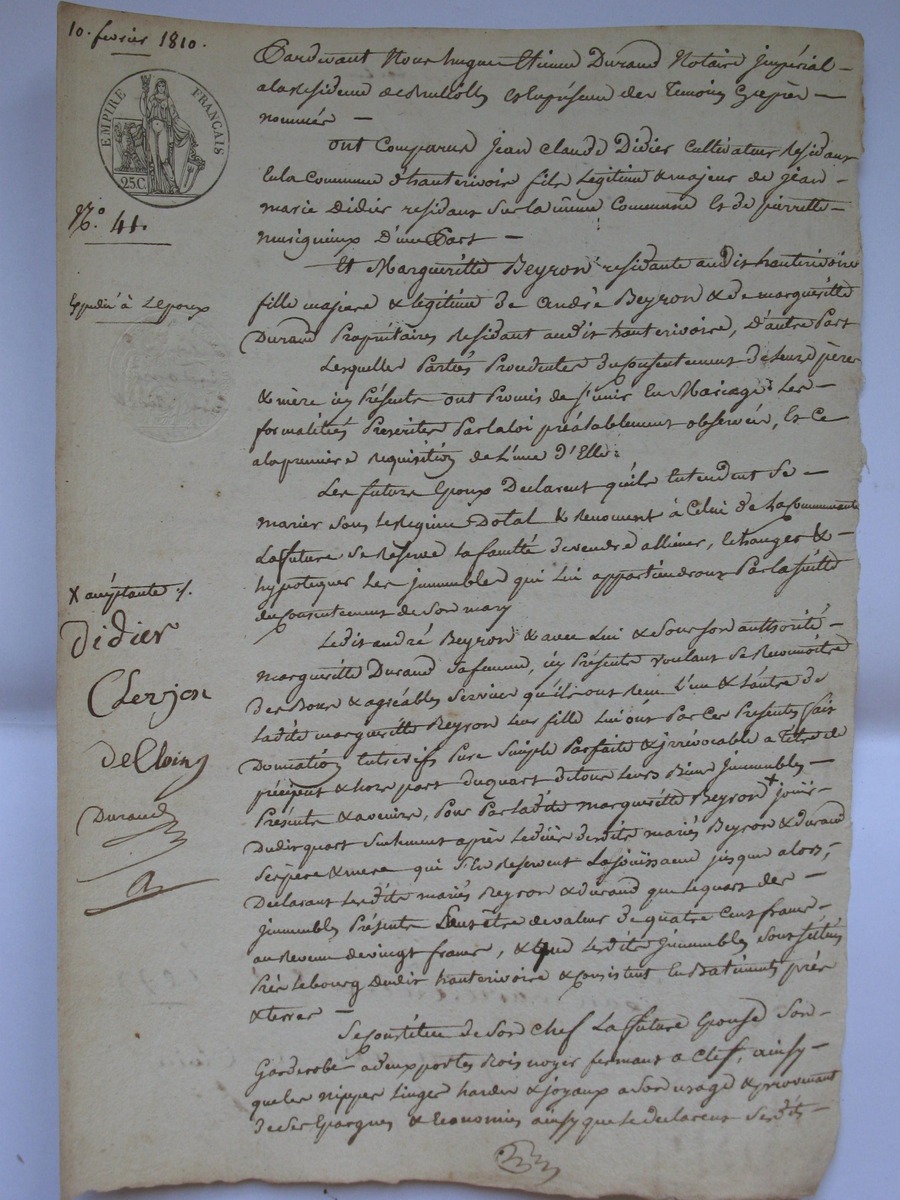 10. fevrier 1810.
EMPIRE FRANÇAIS
25C.
N.° 41.
Expedié à Lepoux
X aceptante ./.
Didier
Clerjon
Decloing
Durand
Pardevant Nous hugue Etienne Durand Notaire jmpérial
ala Residence de Brullioles En presence des Temoins
nommés
ont Comparus jean Claude Didier Cultivateur Residant
En la Commune d'hauterivoire fils Legitime & majeur de jean
marie Didier residant Sur la même Commune Et de pierrette
D'une Part
Et Margueritte Beyron residante audit hauterivoire
fille majeure & legitime de andré Beyron & de margueritte
Durand Propriétaires Residant audit hauterivoire, D'autre Part
Lesquelles Parties Procedentes du consentement de leurs pères
& mère icy Présents ont Promis de s'unir En Mariage Les
formalités Prescrites Par la loi préalablement observées, Et Ce
ala premiere requisition de L'une d'Elles
Les futurs Epoux Declarent qu'ils Entendent Se
marier Sous le Regime Dotal & Renoncent à Celui de La Communauté
La future Se Réserve La faculté de vendre alliéner, Echanger &
hypotequer Les jmmeubles qui Lui appartiendront Par la suitte
du consentement de Son mary
Ledit andré Beyron & avec Lui & Sous son authorité
margueritte Durand Sa femme, icy Présents voulant Se Reconnoitre
des Bons & agréables Services qu'ils ont Reçu L'un & L'autre de
Ladite margueritte Beyron Leur fille Lui ont Par Ces Presentes fait
Donnation Entre vifs Pure Simple Parfaite & jrrévocable a Titre de
précipput & hors part du quart de tous Leurs Biens jmmeubles
Présents & avenirs, Pour Par Ladite margueritte Beyron + jouir
Dudit quart Seulement après Le décès desdits mariés Beyron & durand
Ses père & mere qui S'En Reservent La jouissance jusque alors,
Declarant Lesdits mariés Beyron & durand que Le quart des
jmmeubles Présents Peut être de valeur de quatre Cent francs
au Revenu de vingt francs, & que Lesdits jmmeubles Sont Situés
Près Le bourg dudit hauterivoire & consistent En Batiments prés
& terres
Se constitue de Son Chef La future Epouse Son
Garderobe a deux portes Bois noyer fermant a Clef, ainsy
que les nippes Linges hardes & joyaux a Son usage & provenant
de Ses Epargnes & Economies ainsy que Le declarent Sesdits